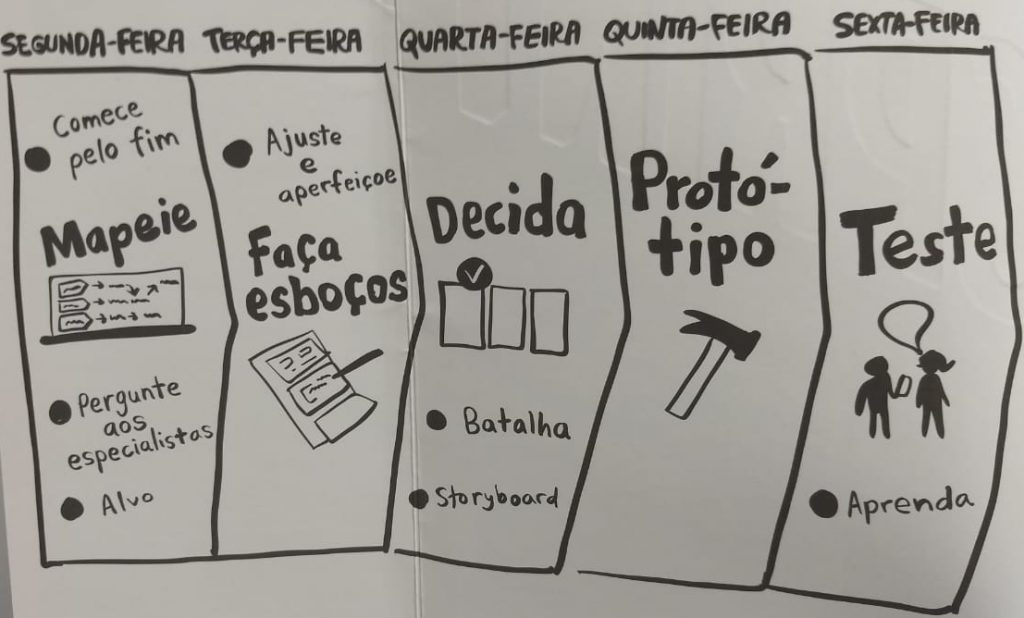 SEGUNDA-FEIRA
Comece
pelo fim
Mapeie
Pergunte
aos
especialistas
Alvo
TERÇA-FEIRA
Ajuste
e
aperfeiçoe
Faça
esboços
QUARTA-FEIRA
Decida
Batalha
Storyboard
QUINTA-FEIRA
Protó-
tipo
SEXTA-FEIRA
Teste
Aprenda